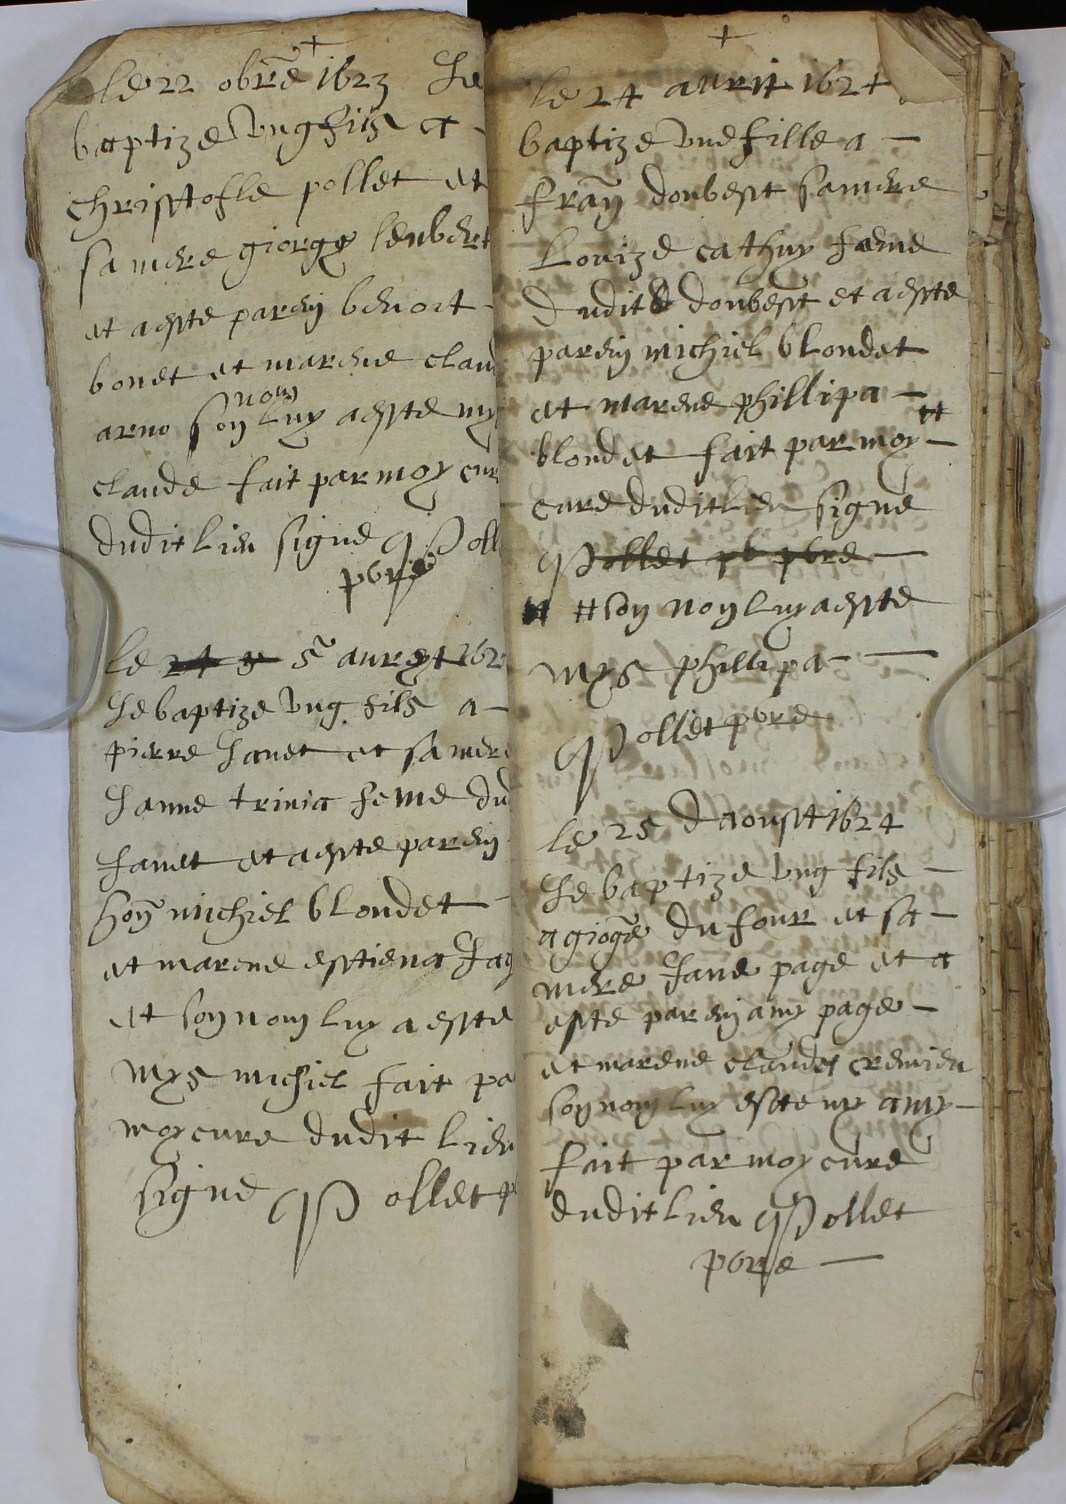 +
le 22 obre 1623 Je
baptize ung fils a -
christofle pollet et
sa mere giorge leuber
et aeste parey benoit -
bonet et marene clau
nom
arno soy luy aeste my
claude fait par moy cur
dudit lieu signe Poll
pbre
le 24 5 avryt 162
Je baptize ung fils a -
pierre Janet et sa mere
Janne trinia feme du
Janet et aeste parey
hon michiel blondet -
et marene estiena Jag
et soy nom luy a este
mys michiel fait pa
moy cure dudit lieu
signe Pollet p
+
le 24 avrit 1624
baptize une fille a -
fray doubest sa mere
Louize cathuy feme
dudit doubest et aeste
parey michiel blondet
et marene phillipa -
blondet fait par moy - #
cure dudit lieu signe
Pollet pb pbre -
# # soy nom luy aeste
mys phillipa -
Pollet pbre
le 25 d aoust 1624
Je baptize ung fils -
a gioge du four et sa -
mere Jane page et a
este parey amy page -
et marene claudet cremieu
soy nom luy este my amy -
fait par moy cure
dudit lieu Pollet
pbre -